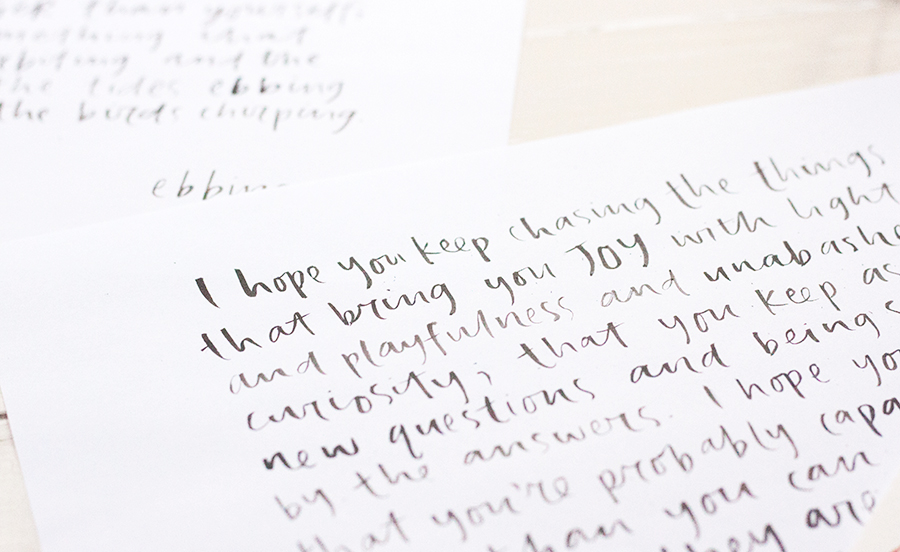 than yourself.
something that
orbiting and the
the tides ebbing
the birds chirping
ebbing
I hope you keep chasing the things
that bring you JOY with light
and playfulness and unabashe
curiosity; that you keep as
new questions and being s
by the answers. I hope you
that you're probably capa
than you can
they are